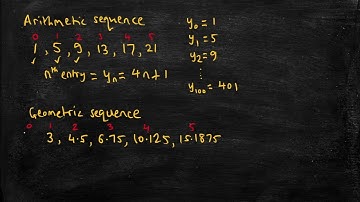 Arithmetic sequence
0 1 2 3 4 5
1, 5, 9, 13, 17, 21
nth entry = yn = 4n+1
y0 = 1
y1 = 5
y2 = 9
⋮
y100 = 401
Geometric sequence
0 1 2 3 4 5
3, 4.5, 6.75, 10.125, 15.1875